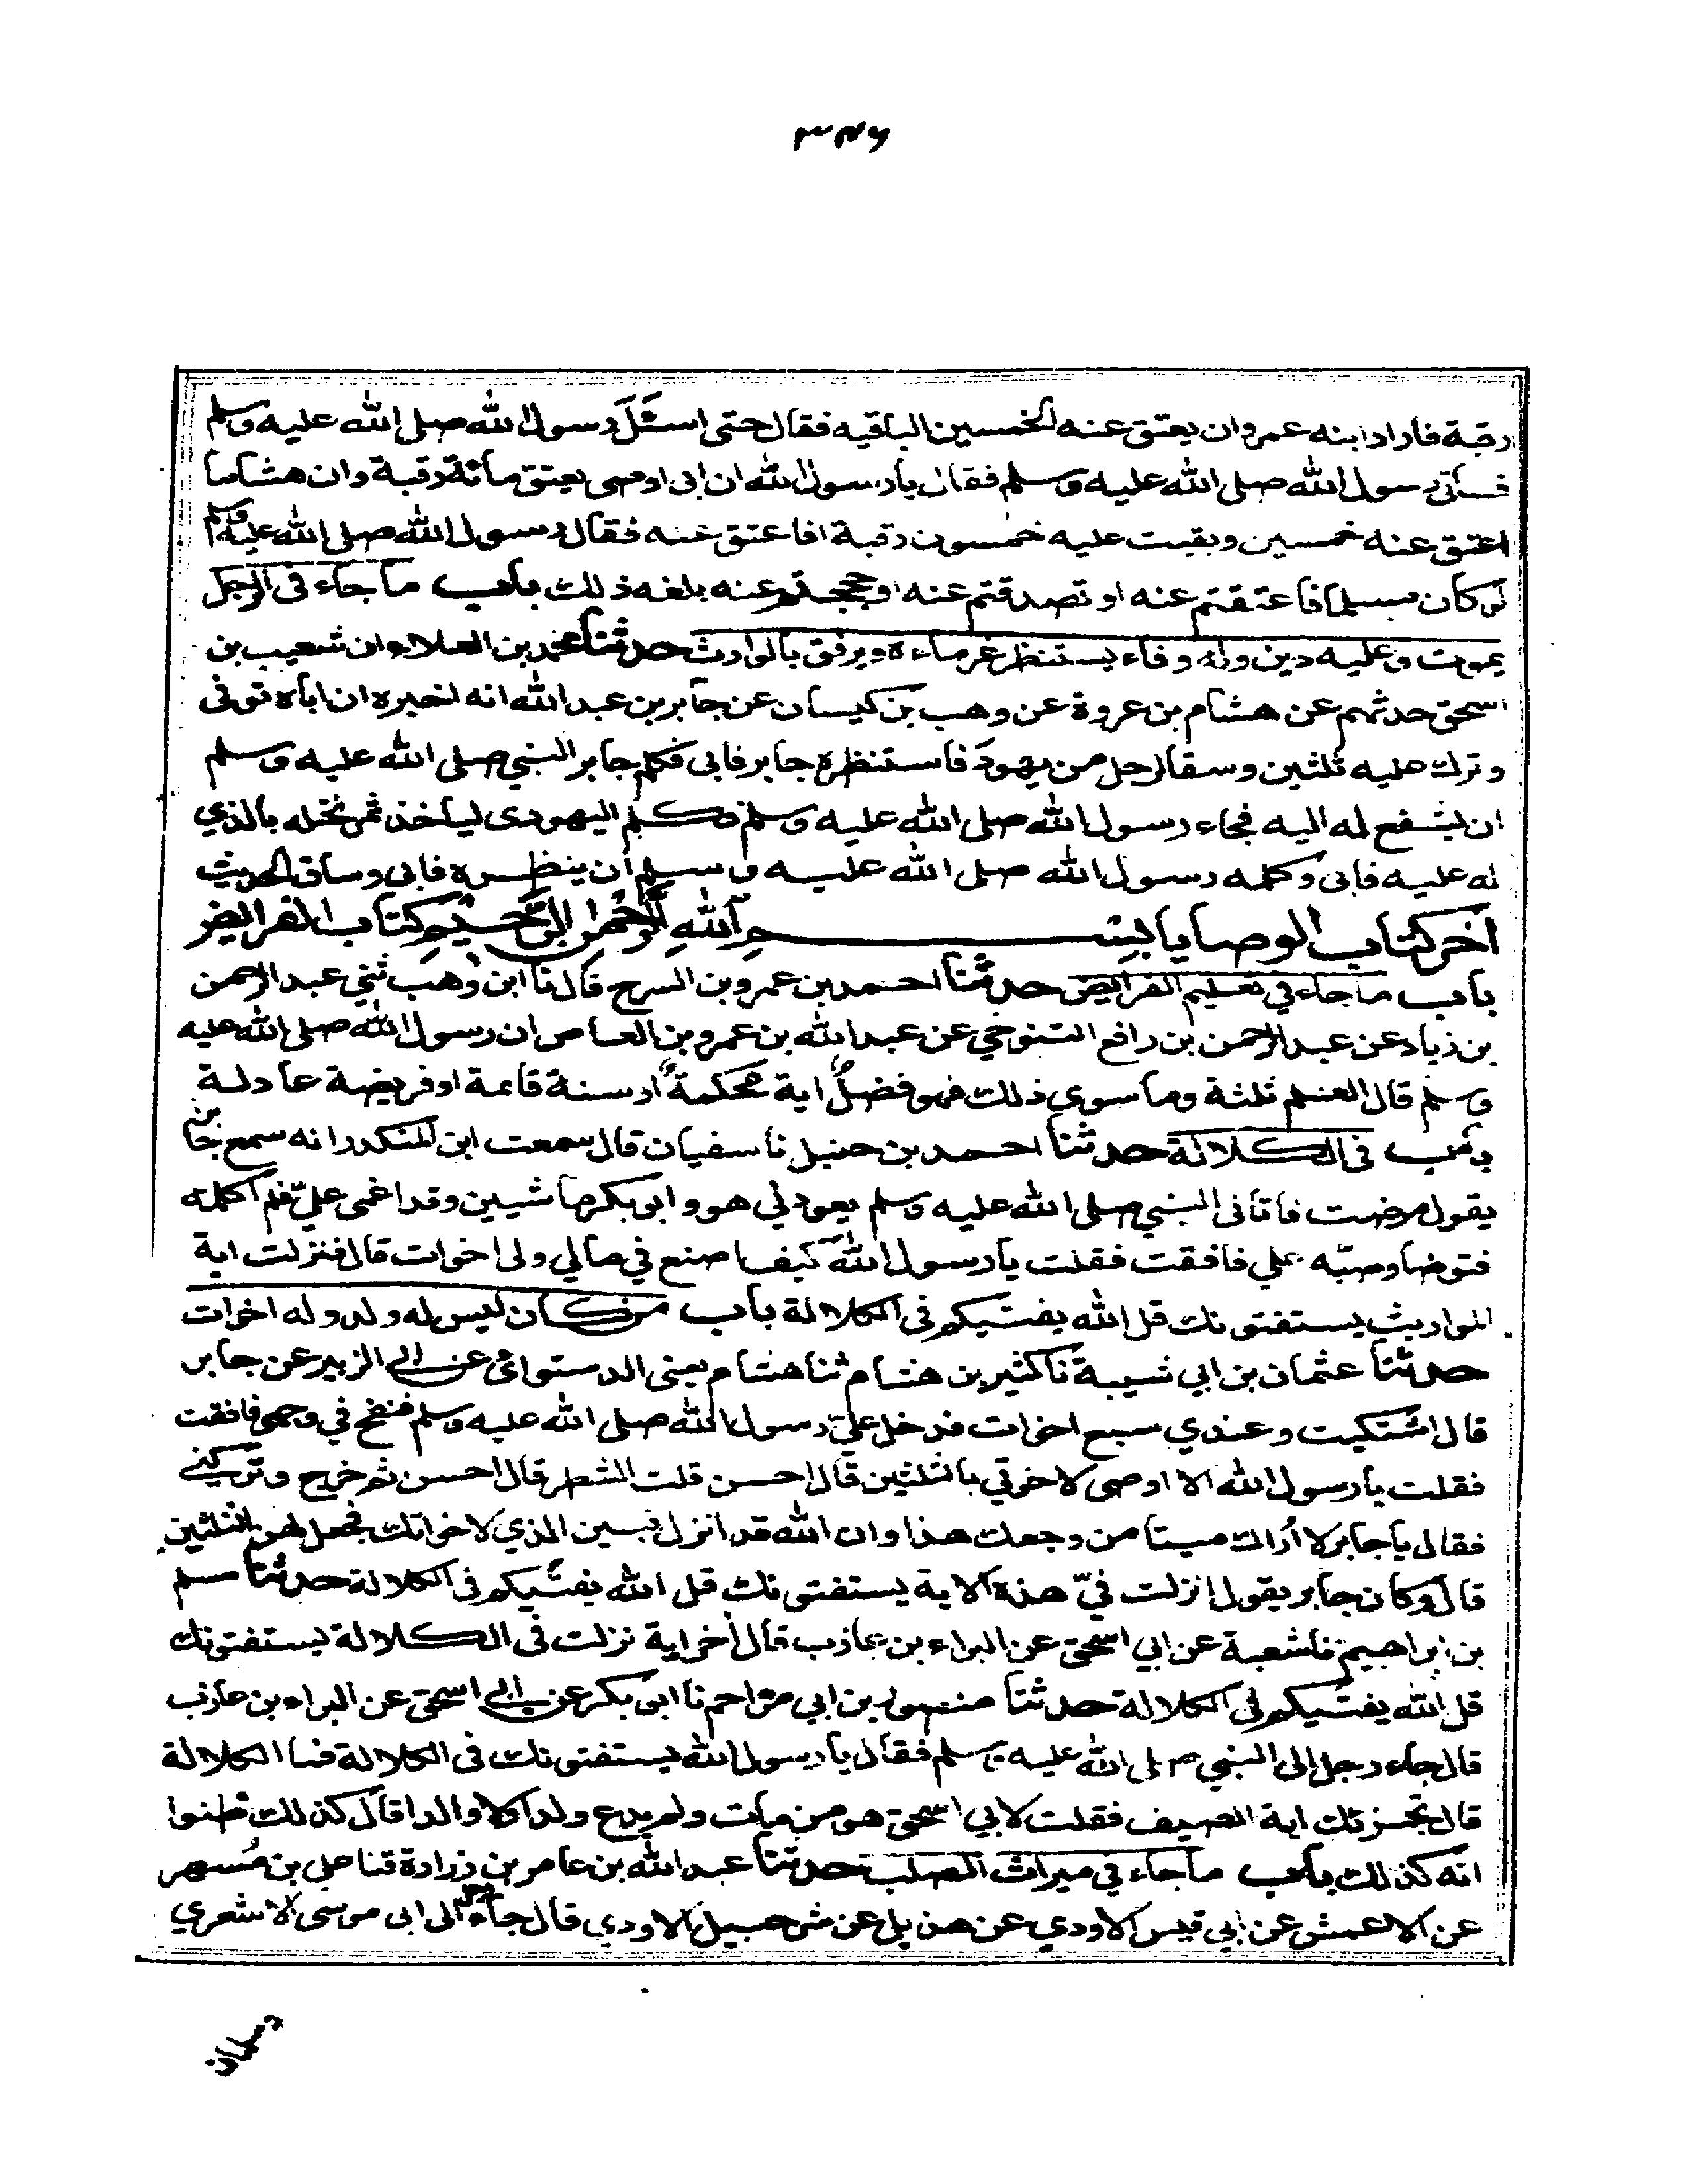 ٣٤٦
رقبة فاراد ابنه عمرو ان يعتق عنه الخمسين الباقيه فقال حتى اسئل رسول الله صلى الله عليه وسلم
فاتى رسول الله صلى الله عليه وسلم فقال يا رسول الله ان ابى اوصى بعتق مائة رقبة وان هشاما
اعتق عنه خمسين وبقيت عليه خمسون رقبة افاعتق عنه فقال رسول الله صلى الله عليه وسلم
لو كان مسلما فاعتقتم عنه او تصدقتم عنه او حججتم عنه بلغه ذلك باب ما جاء فى الرجل
يموت وعليه دين وله وفاء يستنظر غرماءه ويرفق بالوارث حدثنا محمد بن العلاء ان شعيب بن
اسحق حدثهم عن هشام بن عروة عن وهب بن كيسان عن جابر بن عبد الله انه اخبره ان اباه توفى
وترك عليه ثلثين وسقا لرجل من يهود فاستنظره جابر فابى فكلم جابر النبي صلى الله عليه وسلم
ان يشفع له اليه فجاء رسول الله صلى الله عليه وسلم فكلم اليهودى لياخذ ثمر نخله بالذي
له عليه فابى وكلمه رسول الله صلى الله عليه وسلم ان ينظره فابى وساق الحديث
اخر كتاب الوصايا بسم الله الرحمن الرحيم كتاب الفرائض
باب ما جاء في تعليم الفرايض حدثنا احمد بن عمرو بن السرح قال نا ابن وهب ثني عبد الرحمن
بن زياد عن عبد الرحمن بن رافع التنوخي عن عبد الله بن عمرو بن العاص ان رسول الله صلى الله عليه
وسلم قال العلم ثلثة وما سوى ذلك فهو فضل اية محكمة او سنة قائمة او فريضة عادلة
باب فى الكلالة حدثنا احمد بن حنبل نا سفيان قال سمعت ابن المنكدر انه سمع جابر
يقول مرضت فاتانى النبي صلى الله عليه وسلم يعودني هو وابو بكر ماشيين وقد اغمى عليّ فلم اكلمه
فتوضا وصبّه علي فافقت فقلت يا رسول الله كيف اصنع في مالي ولى اخوات قال فنزلت اية
المواريث يستفتونك قل الله يفتيكم فى الكلالة باب من كان ليس له ولد وله اخوات
حدثنا عثمان بن ابي شيبة نا كثير بن هشام ثنا هشام يعنى الدستوائى عن ابي الزبير عن جابر
قال اشتكيت وعندي سبع اخوات فدخل عليّ رسول الله صلى الله عليه وسلم فنفخ في وجهى فافقت
فقلت يا رسول الله الا اوصى لاخوتي بالثلثين قال احسن قلت الشطر قال احسن ثم خرج وتركني
فقال يا جابر لا اُراك ميتا من وجعك هذا وان الله قد انزل فبين الذي لاخواتك فجعل لهن الثلثين
قال وكان جابر يقول انزلت فيّ هذه الاية يستفتونك قل الله يفتيكم فى الكلالة حدثنا مسلم
بن ابراهيم نا شعبة عن ابي اسحق عن البراء بن عازب قال اخر اية نزلت فى الكلالة يستفتونك
قل الله يفتيكم فى الكلالة حدثنا منصور بن ابي مزاحم نا ابو بكر عن ابي اسحق عن البراء بن عازب
قال جاء رجل الى النبي صلى الله عليه وسلم فقال يا رسول الله يستفتونك فى الكلالة فما الكلالة
قال تجزئك اية الصيف فقلت لابي اسحق هو من مات ولم يدع ولدا ولا والدا قال كذلك ظنوا
انه كذلك باب ما جاء في ميراث الصلب حدثنا عبد الله بن عامر بن زرارة قنا علي بن مُسهر
عن الاعمش عن ابي قيس الاودي عن هزيل عن شرحبيل الاودي قال جاء رجل الى ابى موسى الاشعري